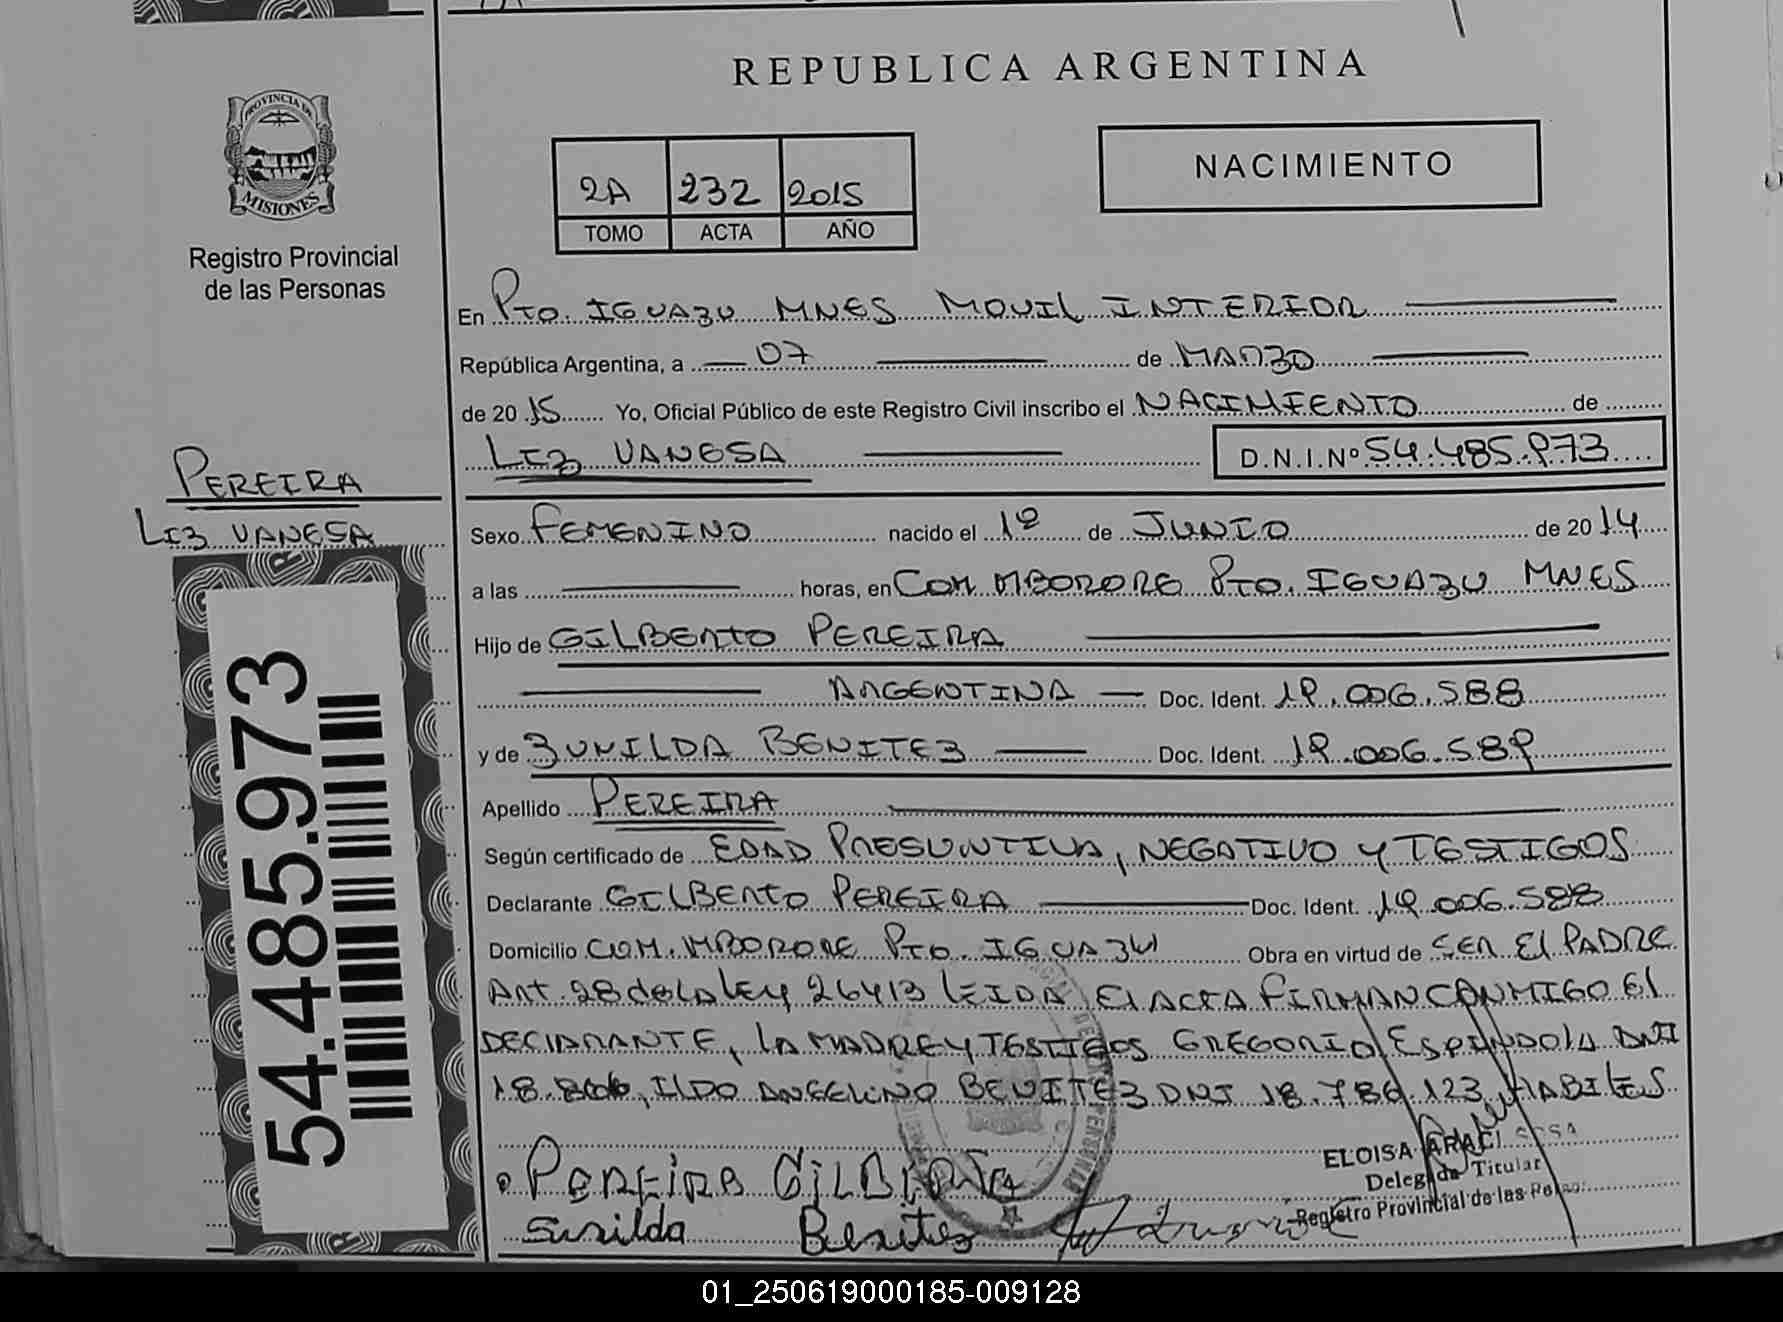 REPUBLICA ARGENTINA
PROVINCIA DE
MISIONES
Registro Provincial
de las Personas
2A 232 2015
TOMO ACTA AÑO
NACIMIENTO
En Pto. IGUAZU MNES MOVIL INTERIOR
República Argentina, a 07 de MARZO
de 2015 Yo, Oficial Público de este Registro Civil inscribo el NACIMIENTO de
LIZ VANESA D.N.I.Nº 54.485.973
PEREIRA
LIZ VANESA
Sexo FEMENINO nacido el 1º de JUNIO de 2014
a las horas, en COM. MBORORE PTO. IGUAZU MNES
Hijo de GILBERTO PEREIRA
ARGENTINA Doc. Ident. 19.006.588
y de ZUNILDA BENITEZ Doc. Ident. 19.006.589
Apellido PEREIRA
Según certificado de EDAD PRESUNTIVA, NEGATIVO Y TESTIGOS
Declarante GILBERTO PEREIRA Doc. Ident. 19.006.588
Domicilio COM. MBORORE PTO. IGUAZU Obra en virtud de SER El PADRE
Art. 28 de la ley 26413 LEIDA El ACTA FIRMAN CONMIGO El
DECLARANTE, LA MADRE Y TESTIGOS GREGORIO ESPINDOLA DNI
18. ILDO ANGELINO BENITEZ DNI 18.786.123 HABILES
54.485.973
ELOISA ARACI SOSA
Delegada Titular
Registro Provincial de las
PEREIRA GILBERTO
Sunilda Benitez
01_250619000185-009128